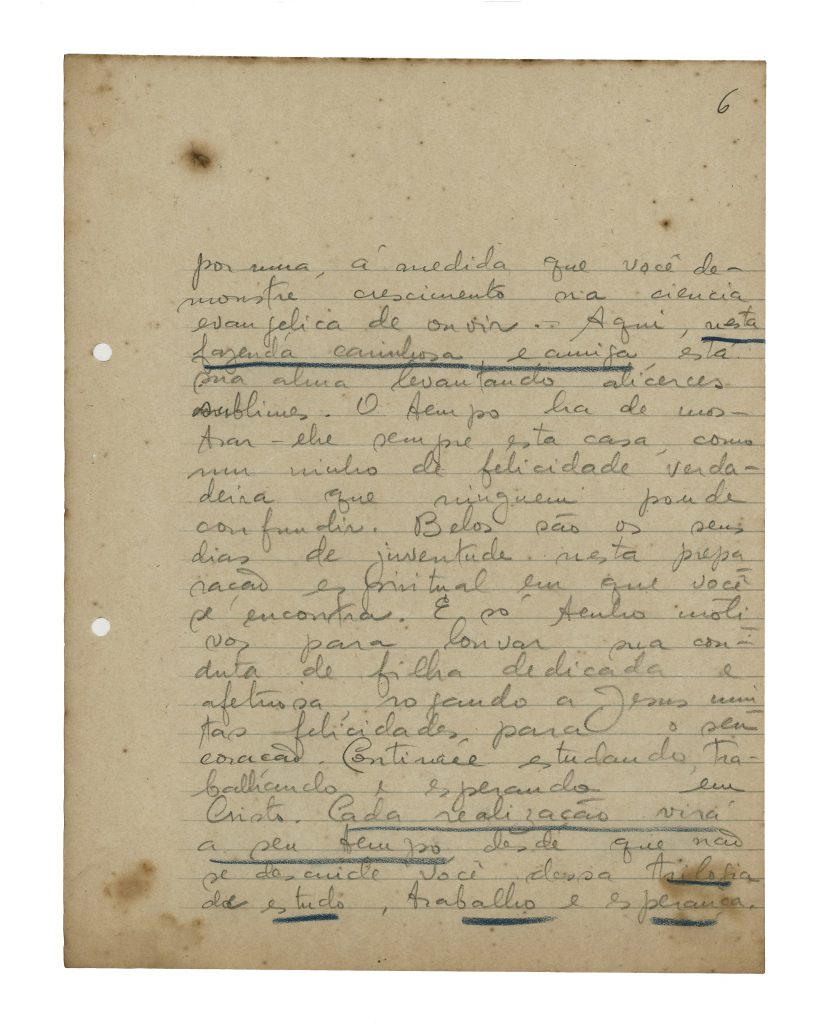 6
por uma, á medida que você de-
monstre crescimento na ciencia
evangélica de ouvir... Aqui, nesta
fazenda carinhosa, e amiga está
sua alma levantando alicerces
sublimes. O tempo ha de mos-
trar-lhe sempre esta casa, como
um ninho de felicidade verda-
deira que ninguem poude
confundir. Belos são os seus
dias de juventude nesta prepa
ração espiritual em que você
se encontra. E só tenho moti
vos para louvar sua con-
duta de filha dedicada e
afetuosa, rogando a Jesus mui
tas felicidades para o seu
coração. Continúe estudando, tra-
balhando e esperando em
Cristo. Cada realização virá
a seu tempo desde que não
se descuide você dessa trilogia
de estudo, trabalho e esperança.